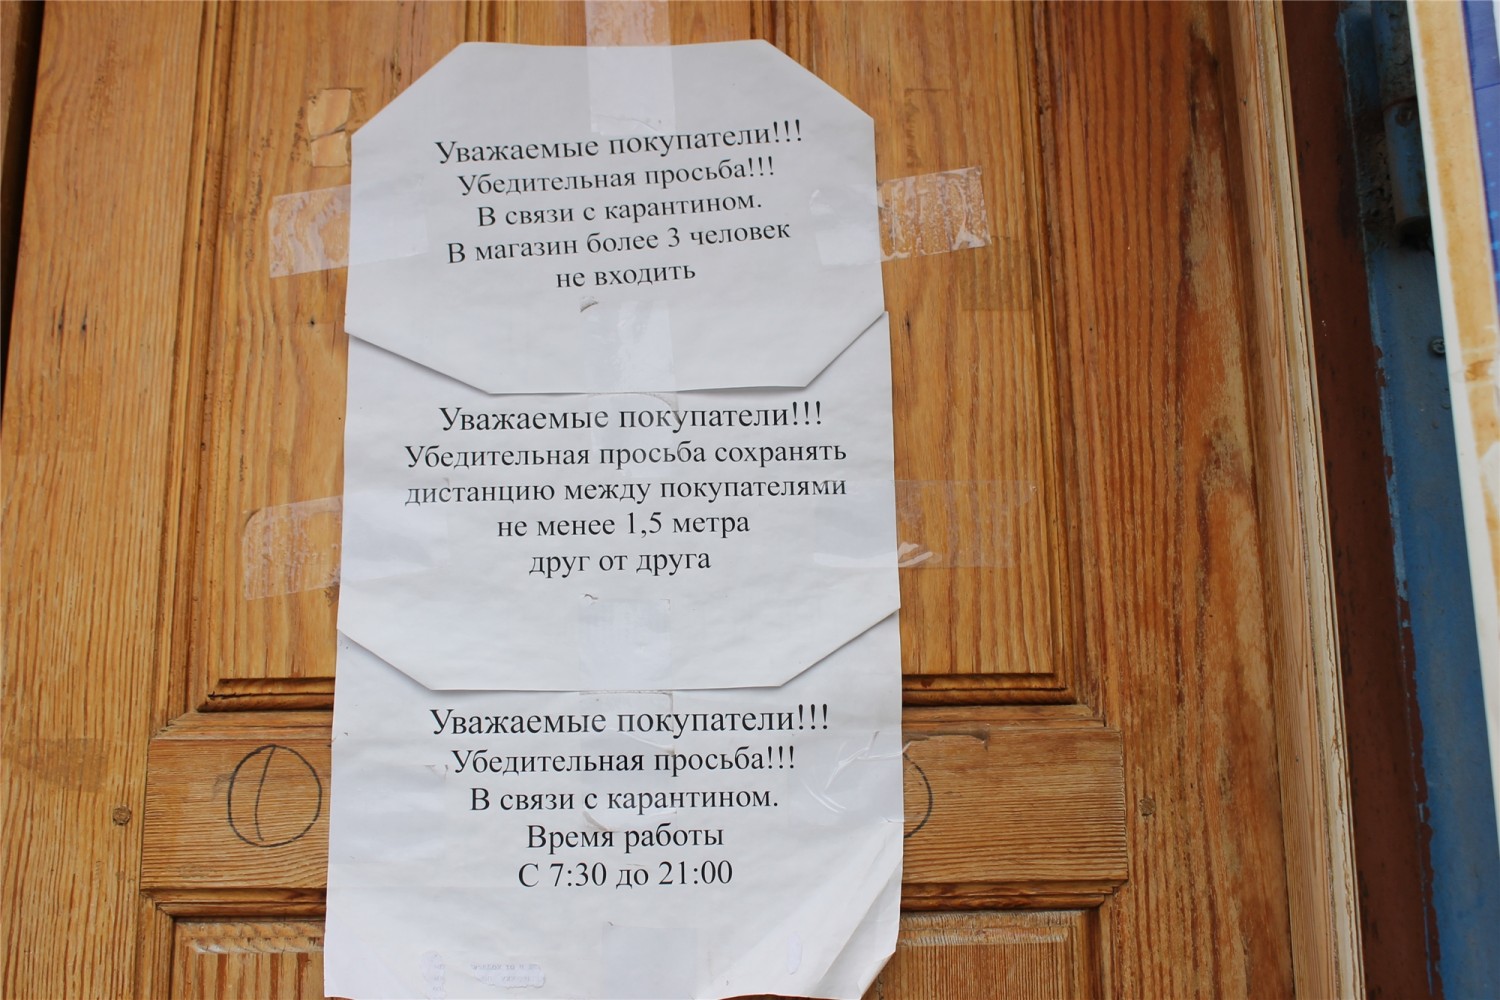 Уважаемые покупатели!!!
Убедительная просьба!!!
В связи с карантином.
В магазин более 3 человек
не входить
Уважаемые покупатели!!!
Убедительная просьба сохранять
дистанцию между покупателями
не менее 1,5 метра
друг от друга
Уважаемые покупатели!!!
Убедительная просьба!!!
В связи с карантином.
Время работы
С 7:30 до 21:00